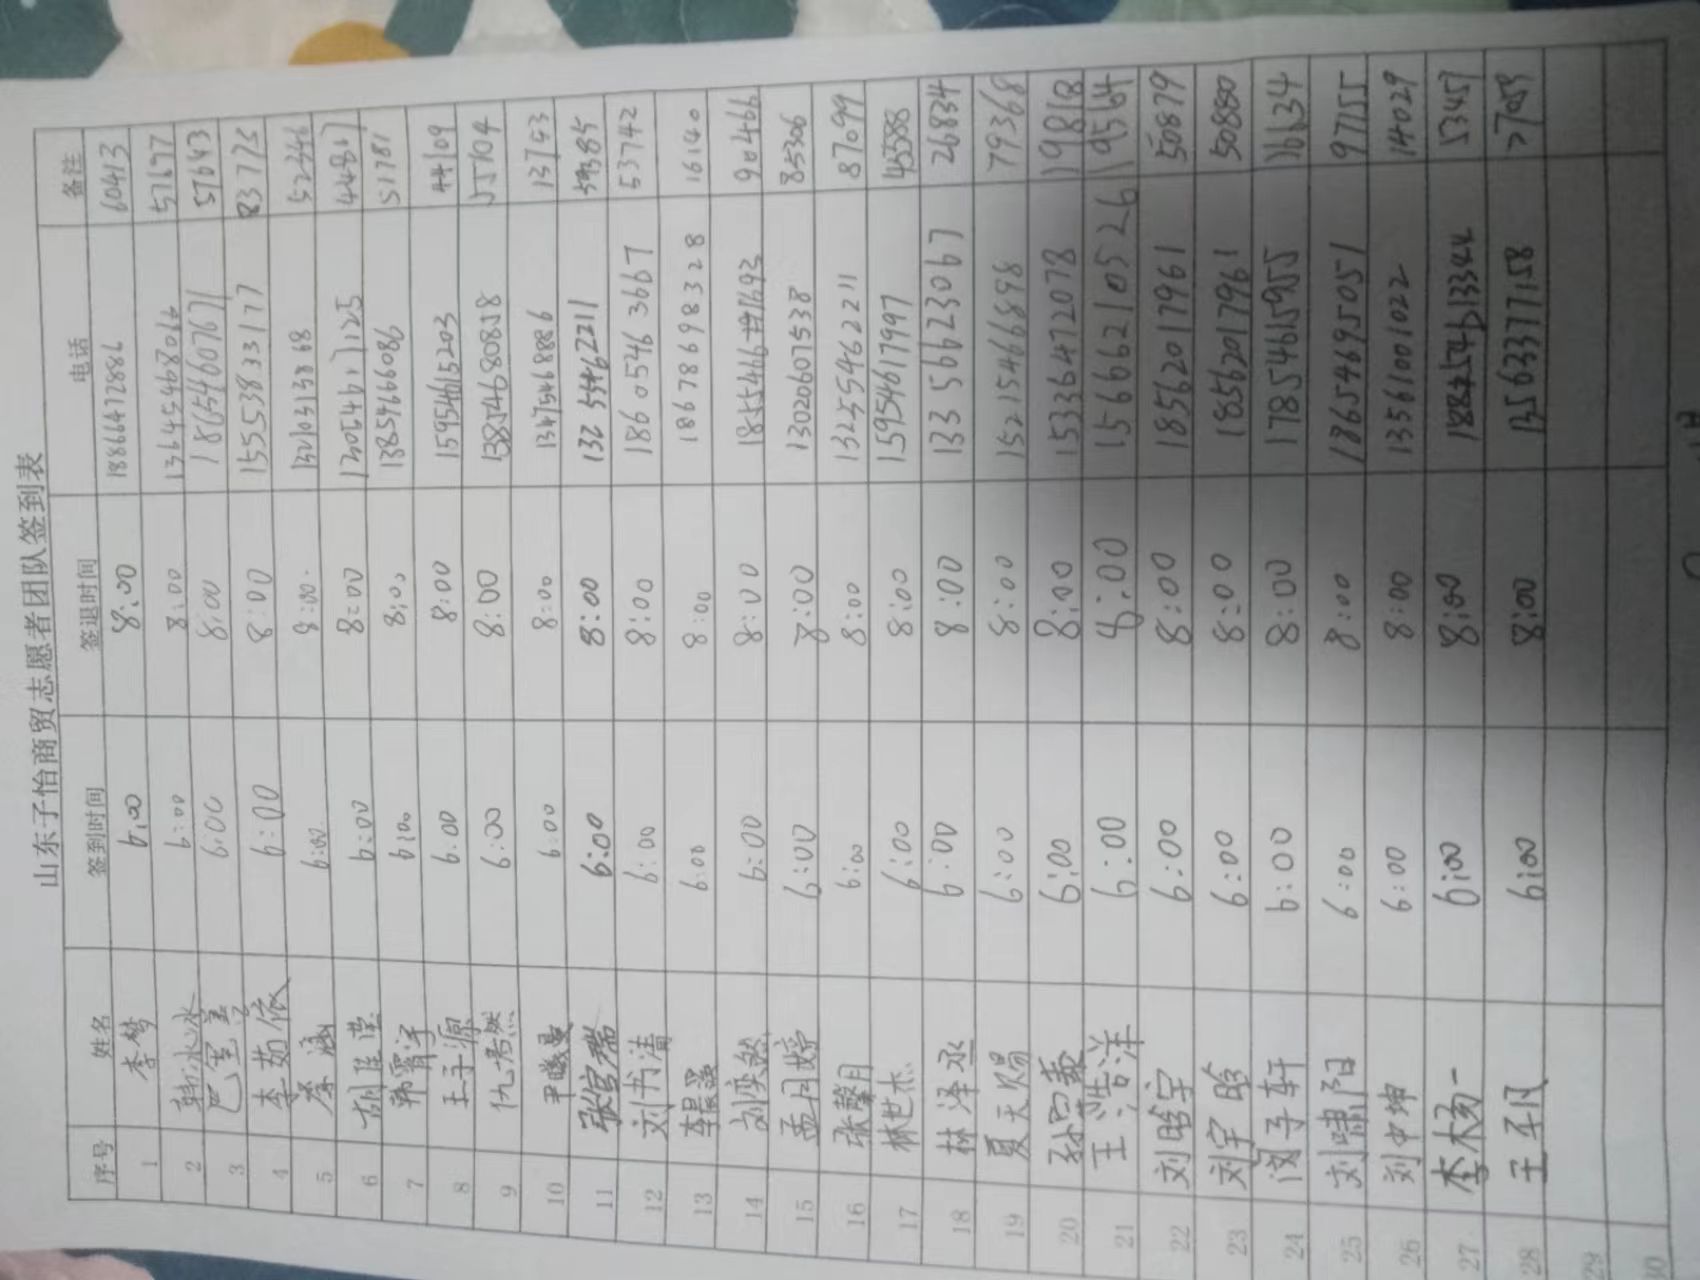 山东子怡商贸志愿者团队签到表
序号 姓名 签到时间 签退时间 电话 备注
1 李梦 6:00 8:00 18866472886 60413
2 韩冰冰 6:00 8:00 13645468066 57697
3 6:00 8:00 18654607671 57643
4 李茹依 6:00 8:00 15553833177 83775
5 秦涵 6:00 8:00
6 6:00 8:00
7 韩霄宇 6:00 8:00 13854666086 51781
8 王子源 6:00 8:00 15954615203 44109
9 仇若然 6:00 8:00 13854680858 55104
10 尹曦曼 6:00 8:00 13475468886 13793
11 6:00 8:00 13255462211
12 刘书浩 6:00 8:00 18605463667 53742
13 6:00 8:00 18678698328 16140
14 刘奕然 6:00 8:00 90466
15 孟丹婷 6:00 8:00 13020607538 85306
16 张馨月 6:00 8:00 13255462211 87099
17 林世杰 6:00 8:00 15954617997
18 林泽丞 6:00 8:00 13356623067 26834
19 夏天赐 6:00 8:00 15215466898 79368
20 6:00 8:00 15336472078 19818
21 王浩洋 6:00 8:00 15666210526 19564
22 刘晗宇 6:00 8:00 18562017961 50879
23 刘宇晗 6:00 8:00 18562017961 50880
24 闵子轩 6:00 8:00 17854615955 16634
25 刘啸阳 6:00 8:00 18654695051 97155
26 刘中坤 6:00 8:00 13561001022 14029
27 李杨一 6:00 8:00 53457
28 6:00 8:00 13563377158
29
30